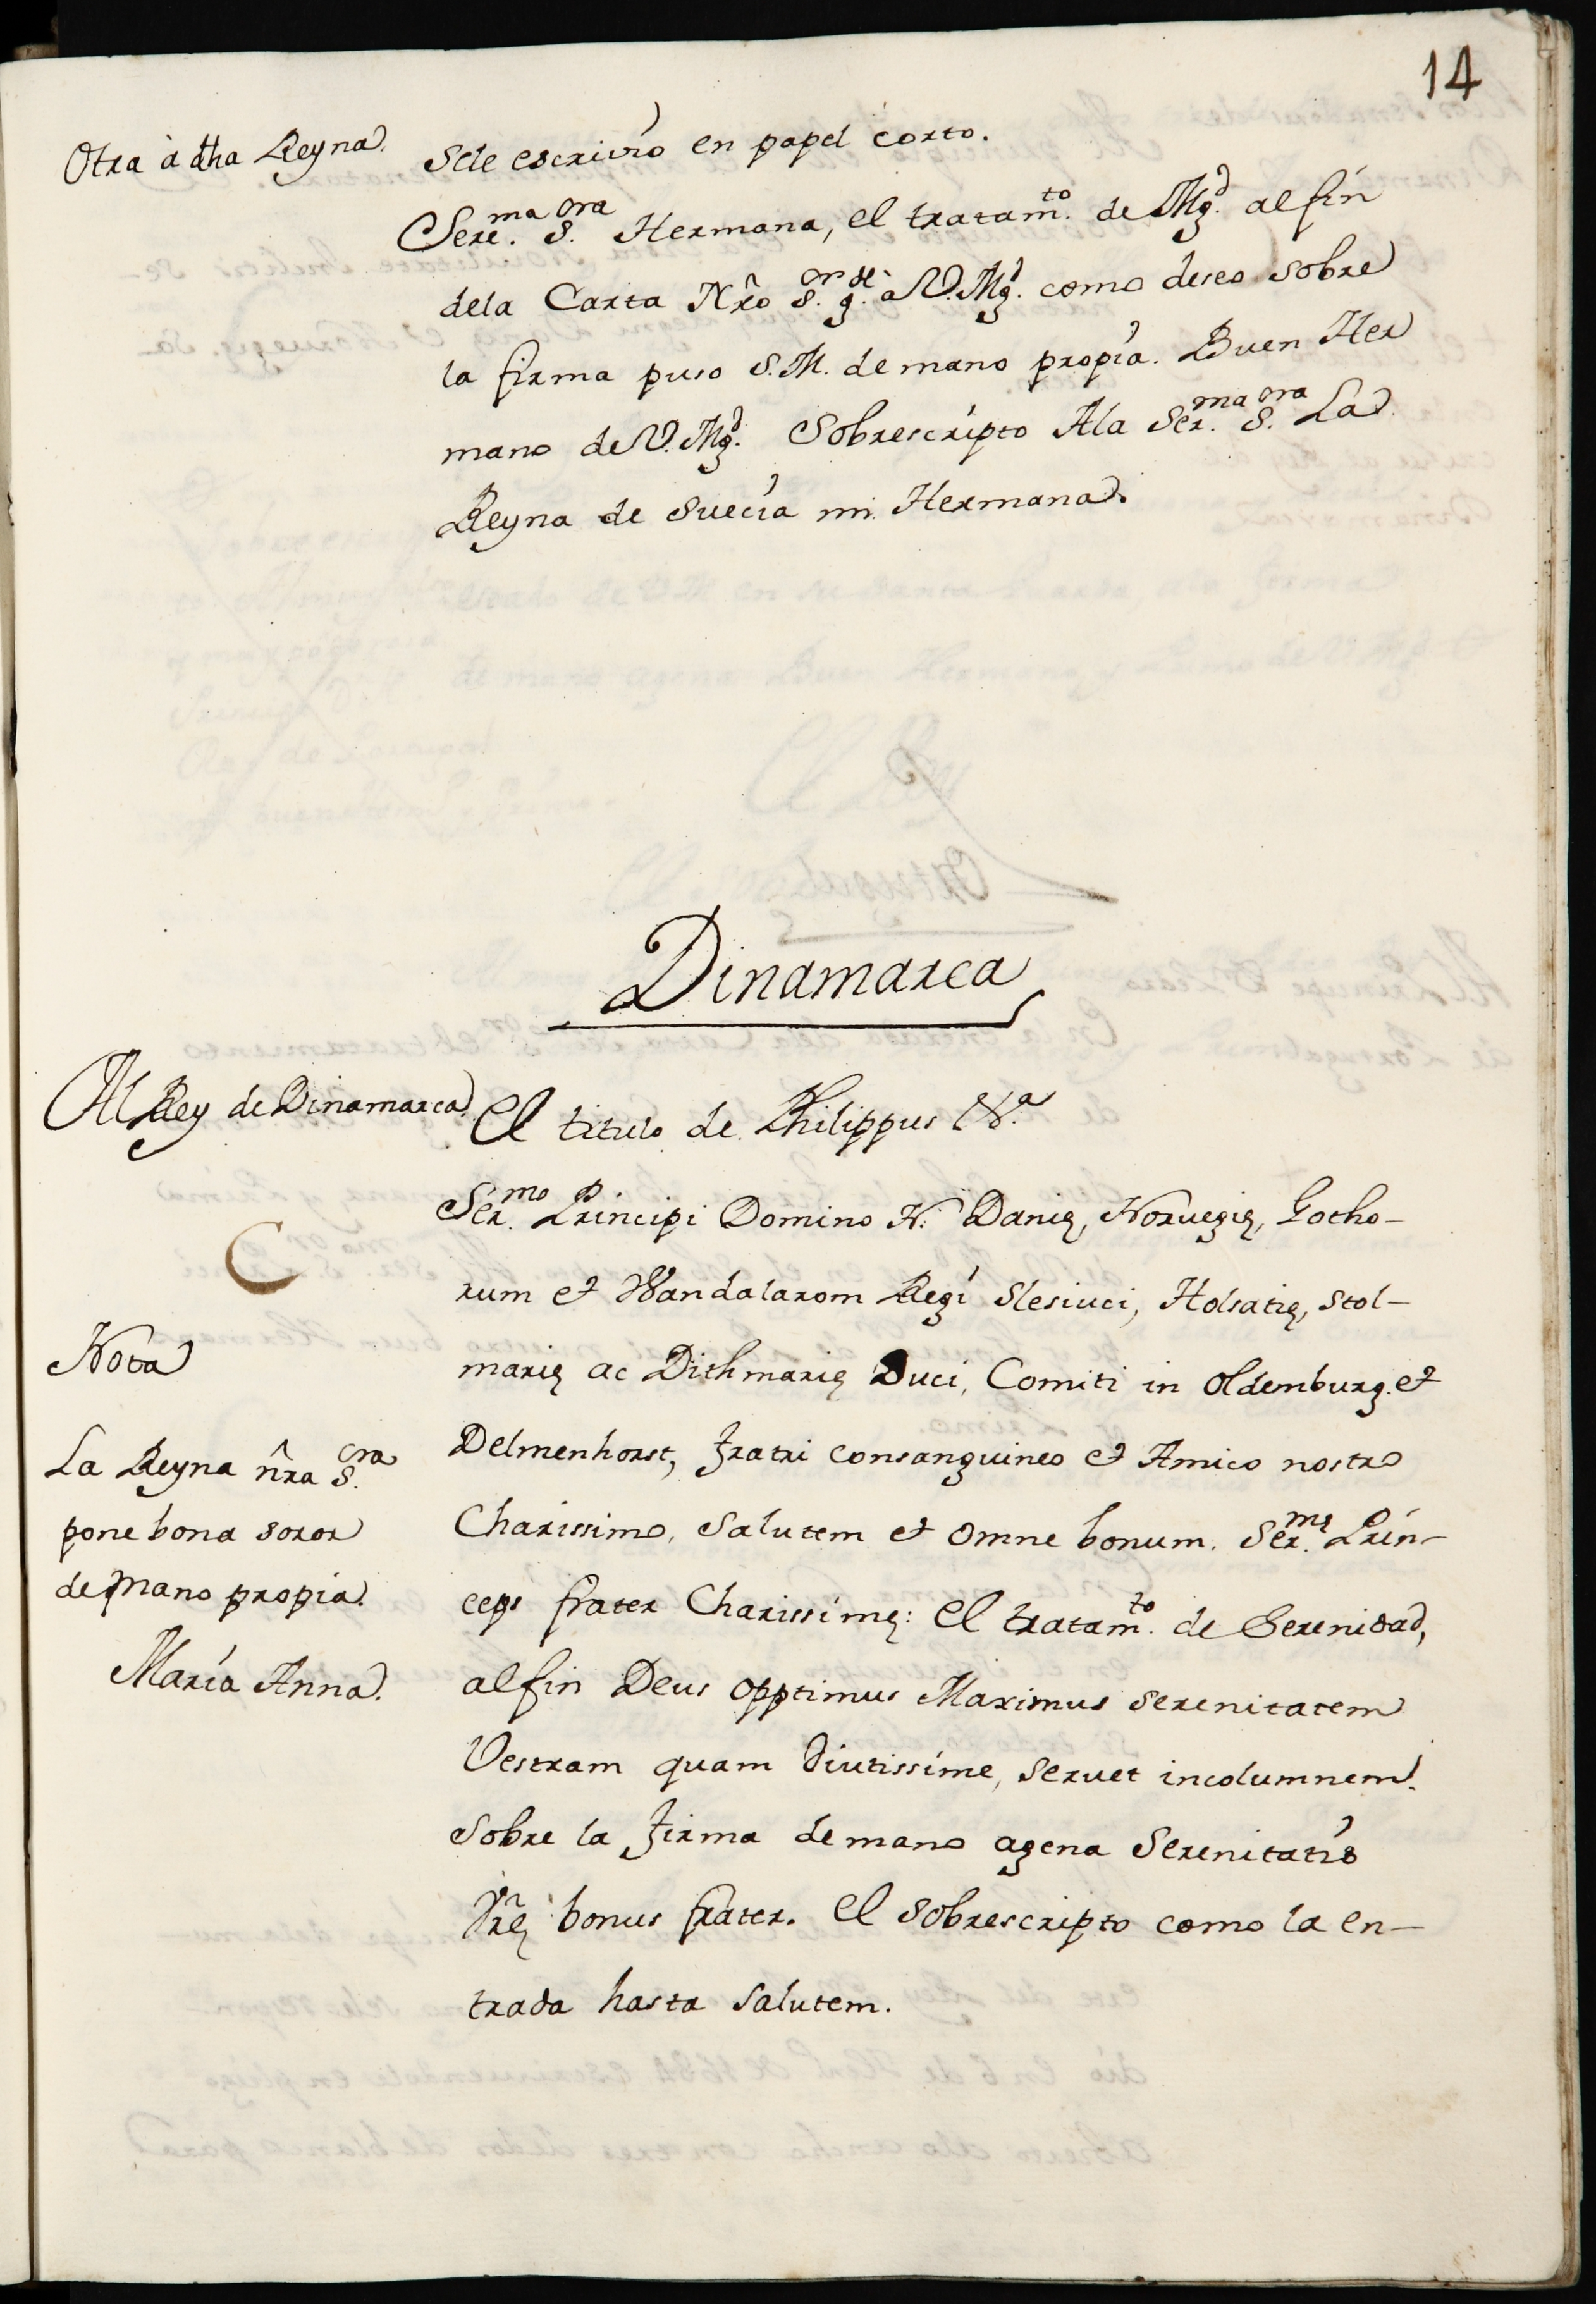 14
Otra à dha Reyna.
Sele escrivio en papel corto.
Sere.ma S.ora Hermana, el tratam.to de Mg.d al fin
dela Carta Nr̃o S.or g.de a V. Mg.d como deseo sobre
la firma puso S. M. de mano propia. Buen Her
mano de V. Mg.d Sobrescripto A la Ser.ma S.ora La
Reyna de Suecia mi Hermana.
Dinamarca
Al Rey de Dinamarca.
El titulo de Philippus &.a
Ser.mo Principi Domino N. Danię, Noruegię, Gotho-
rum et Wandalarom Regi Slesiuci, Holsatię, Stol-
marię ac Dithmarię Duci, Comiti in Oldemburg. et
Delmenhorst, fratri consanguineo et Amico nostro
Charissimo, Salutem et omne bonum. Ser.mę Prin-
ceps frater Charissimę: el tratam.to de Serenidad,
al fin Deus opptimus Maximus Serenitatem
Vestram quam diutissime, seruet incolumnem.
sobre la firma de mano agena Serenitatis
Vr̃ę bonus frater. El sobrescripto como la en-
trada hasta salutem.
Nota
La Reyna ñra S.ora
pone bona soror
de mano propia.
Maria Anna.